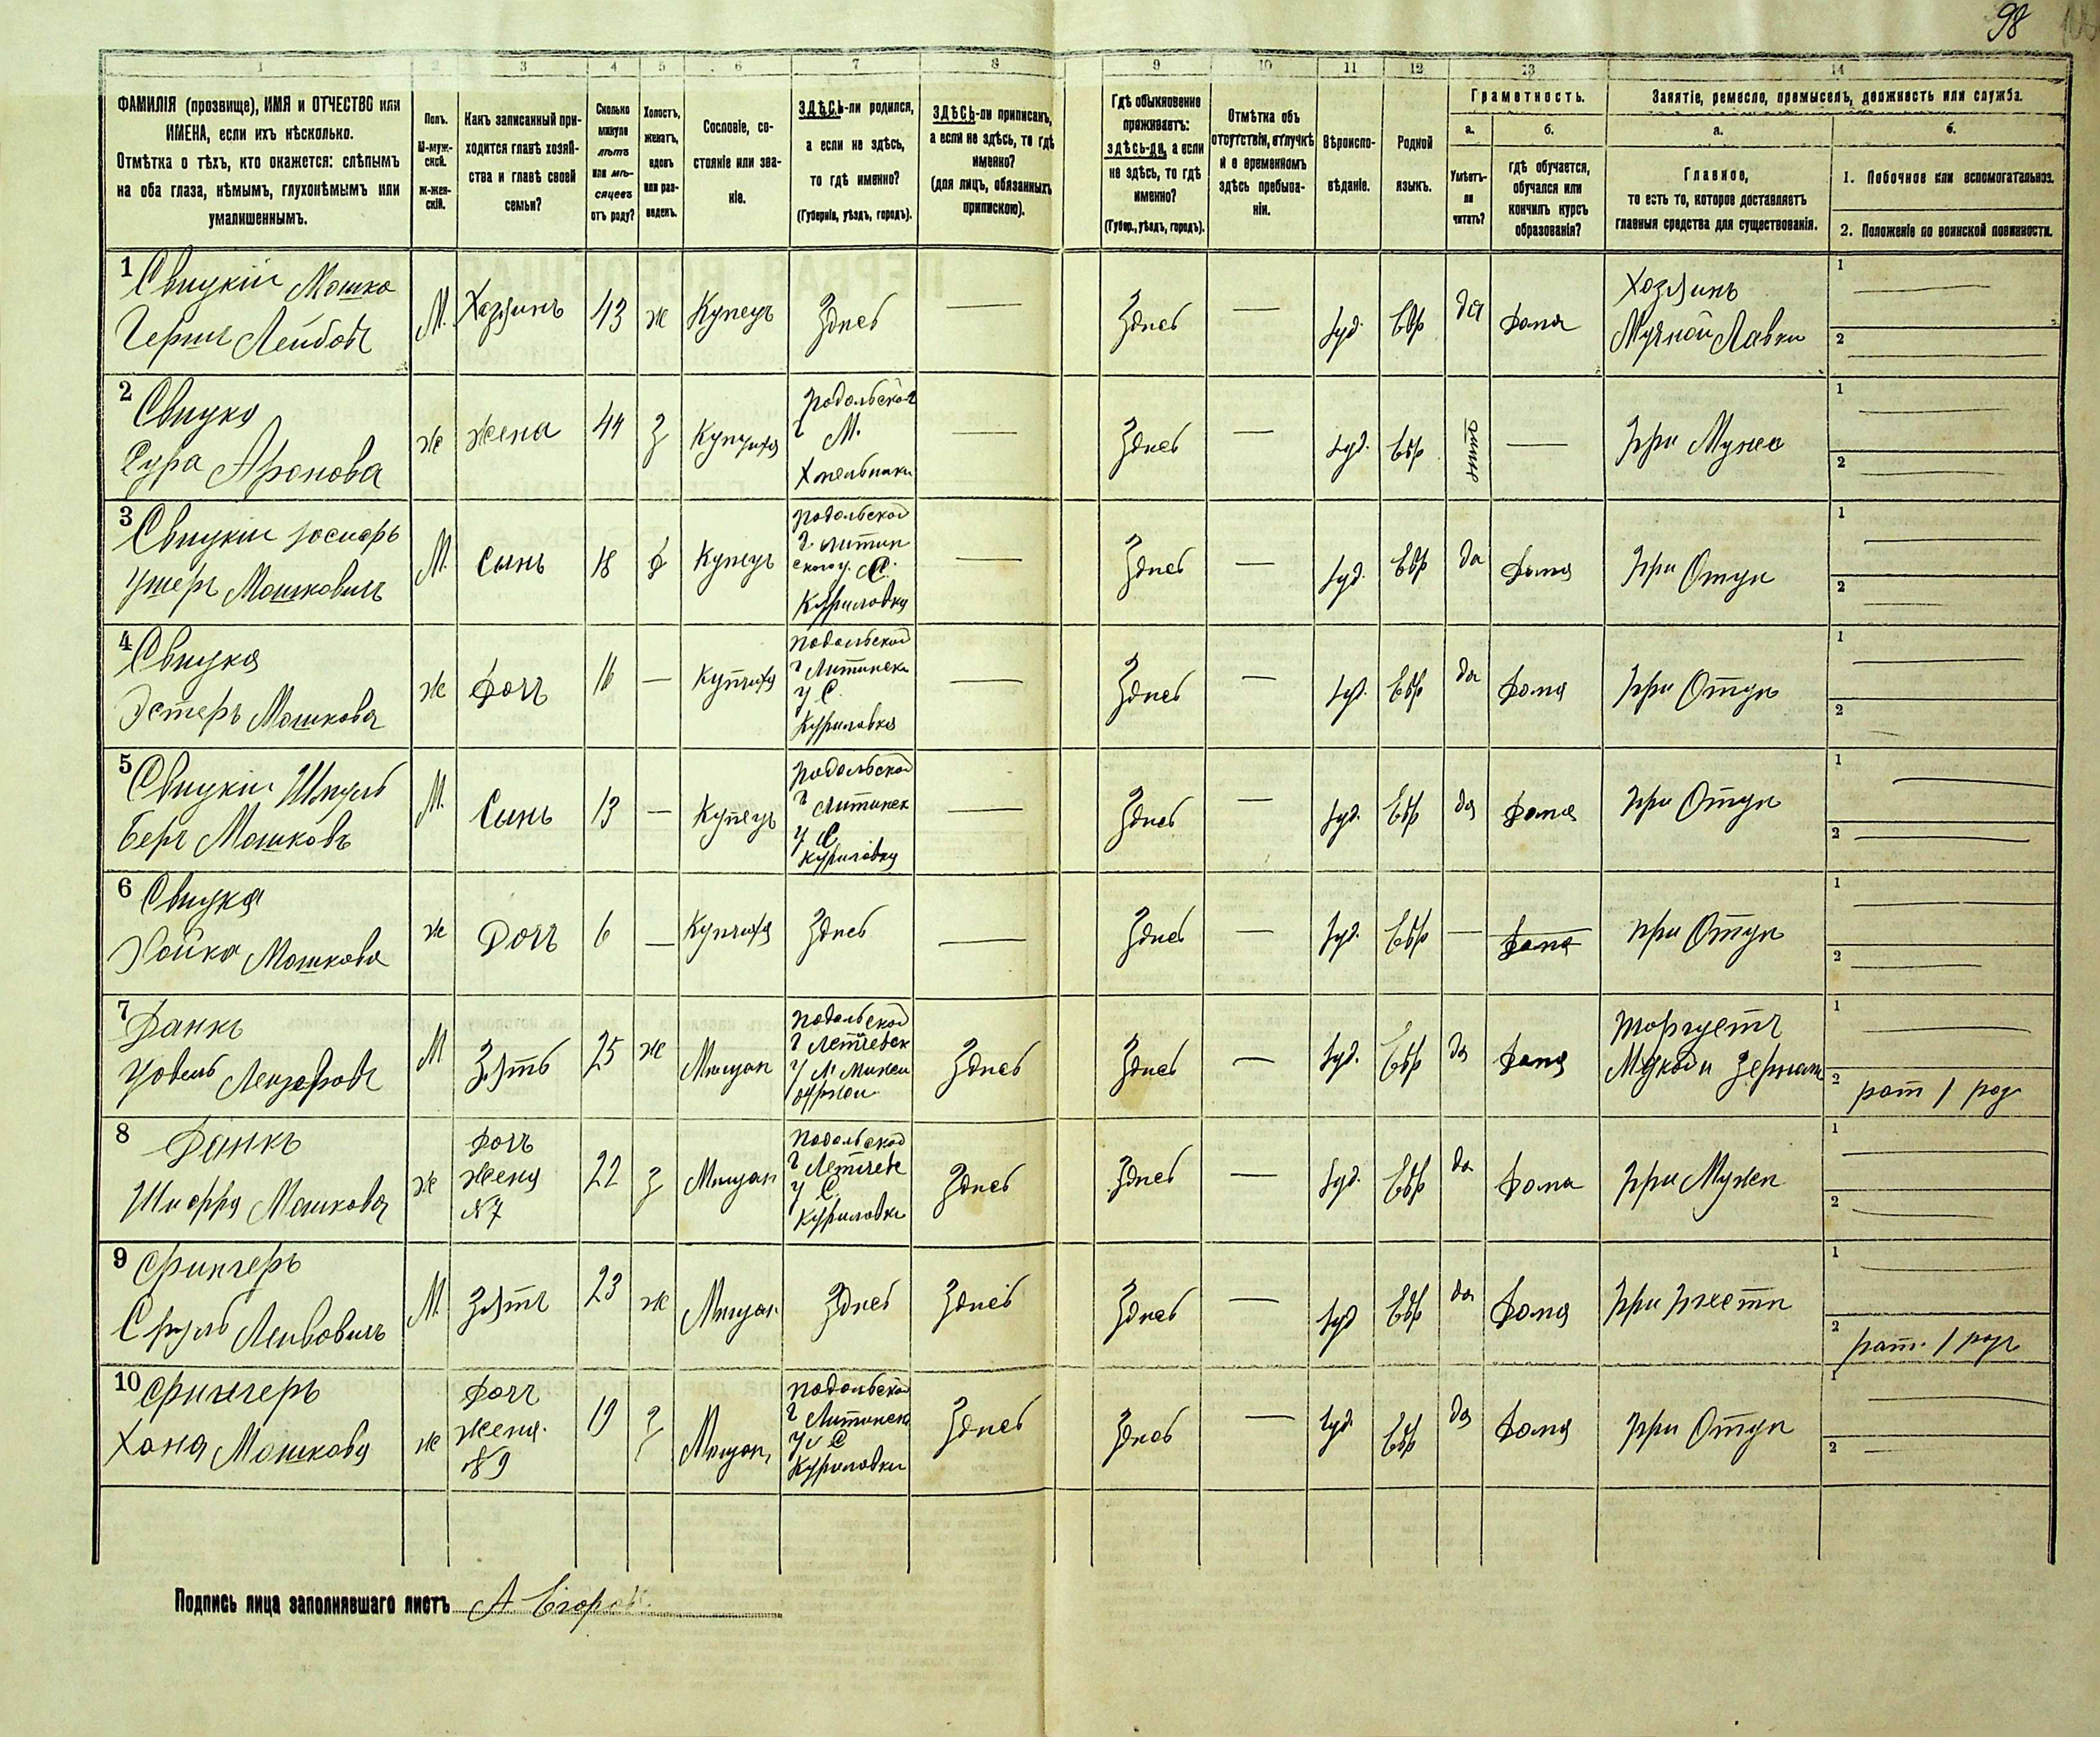 98
1 2 3 4 5 6 7 8 9 10 11 12 13 14
ФАМИЛІЯ (прозвище), ИМЯ и ОТЧЕСТВО или
ИМЕНА, если ихъ нѣсколько.
Отмѣтка о тѣхъ, кто окажется: слѣпымъ
на оба глаза, нѣмымъ, глухонѣмымъ или
умалишеннымъ.
Полъ.
М-муж-
ской.
Ж-жен-
скій.
Какъ записанный при-
ходится главѣ хозяй-
ства и главѣ своей
семьи?
Сколько
минуло
лѣтъ
или мѣ-
сяцевъ
отъ роду?
Холостъ,
женатъ,
вдовъ
или раз-
веденъ.
Сословіе, со-
стояніе или зва-
ніе.
ЗДѢСЬ-ли родился,
а если не здѣсь,
то гдѣ именно?
(Губернія, уѣздъ, городъ).
ЗДѢСЬ-ли приписанъ,
а если не здѣсь, то гдѣ
именно?
(для лицъ, обязанныхъ
припискою).
Гдѣ обыкновенно
проживаетъ:
здѣсь-ли, а если
не здѣсь, то гдѣ
именно?
(Губер., уѣздъ, городъ).
Отмѣтка объ
отсутствіи, отлучкѣ
и о временномъ
здѣсь пребыва-
ніи.
Вѣроиспо-
вѣданіе.
Родной
языкъ.
Грамотность.
а.
Умѣетъ-
ли
читать?
б.
гдѣ обучается,
обучался или
кончилъ курсъ
образованія?
Занятіе, ремесло, промыселъ, должность или служба.
а.
Главное,
то есть то, которое доставляетъ
главныя средства для существованія.
б.
1. Побочное или вспомогательное.
2. Положеніе по воинской повинности.
1 Свицкій Мошко
Герш Лейбовъ
М. Хозяинъ 43 ж Купецъ Здѣсь — Здѣсь — Іуд. Евр да дома
Хозяинъ
Мучной Лавки
1 —
2 —
2 Свицка
Сура Аронова
ж жена 44 з Купчиха
Подольской
г М.
Хмельники
— Здѣсь — Іуд. Евр нѣтъ — При Мужѣ
1 —
2 —
3 Свицкій Іосифъ
Ушеръ Мошковичъ
М. Сынъ 18 Купецъ
Подольской
г Литин
ского у. С.
Куриловка
— Здѣсь — Іуд. Евр да дома При Отцѣ
1 —
2 —
4 Свицкая
Эстеръ Мошкова
ж дочь 16 — Купчиха
Подольской
г Литинск
у С
Куриловка
— Здѣсь — Іуд. Евр да дома При Отцѣ
1 —
2 —
5 Свицкій Шмуль
Беръ Мошковъ
М. Сынъ 13 — Купецъ
Подольской
г Литинск
у С
Куриловка
— Здѣсь — Іуд. Евр да дома При Отцѣ
1 —
2 —
6 Свицкая
Хайка Мошкова
ж Дочь 6 — Купчиха Здѣсь — Здѣсь — Іуд. Евр — дома при Отцѣ
1 —
2 —
7 Данкъ
М Зять 25 ж Мѣщан
Подольской
г Летичевск
у М.
Здѣсь Здѣсь — Іуд. Евр да дома
торгуетъ
Мукой и Зерном
1 —
2 рат 1 раз
8 Данкъ
Шифра Мошкова
ж
дочь
жена
№7
22 з Мѣщан
Подольской
г Летичев
у С
Куриловки
Здѣсь Здѣсь — Іуд. Евр да дома При Мужѣ
1 —
2 —
9
Сруль Лейбовичъ
М. Зять 23 ж Мѣщан Здѣсь Здѣсь Здѣсь — Іуд Евр да дома При тестѣ
1 —
2 рат. 1 раз
10
Хана Мошкова
ж
дочь
жена
№9
19 з Мѣщан
Подольской
г Литинск
у С
Куриловки
Здѣсь Здѣсь — Іуд. Евр да дома При Отцѣ
1 —
2 —
Подпись лица заполнявшаго листъ А Егоров